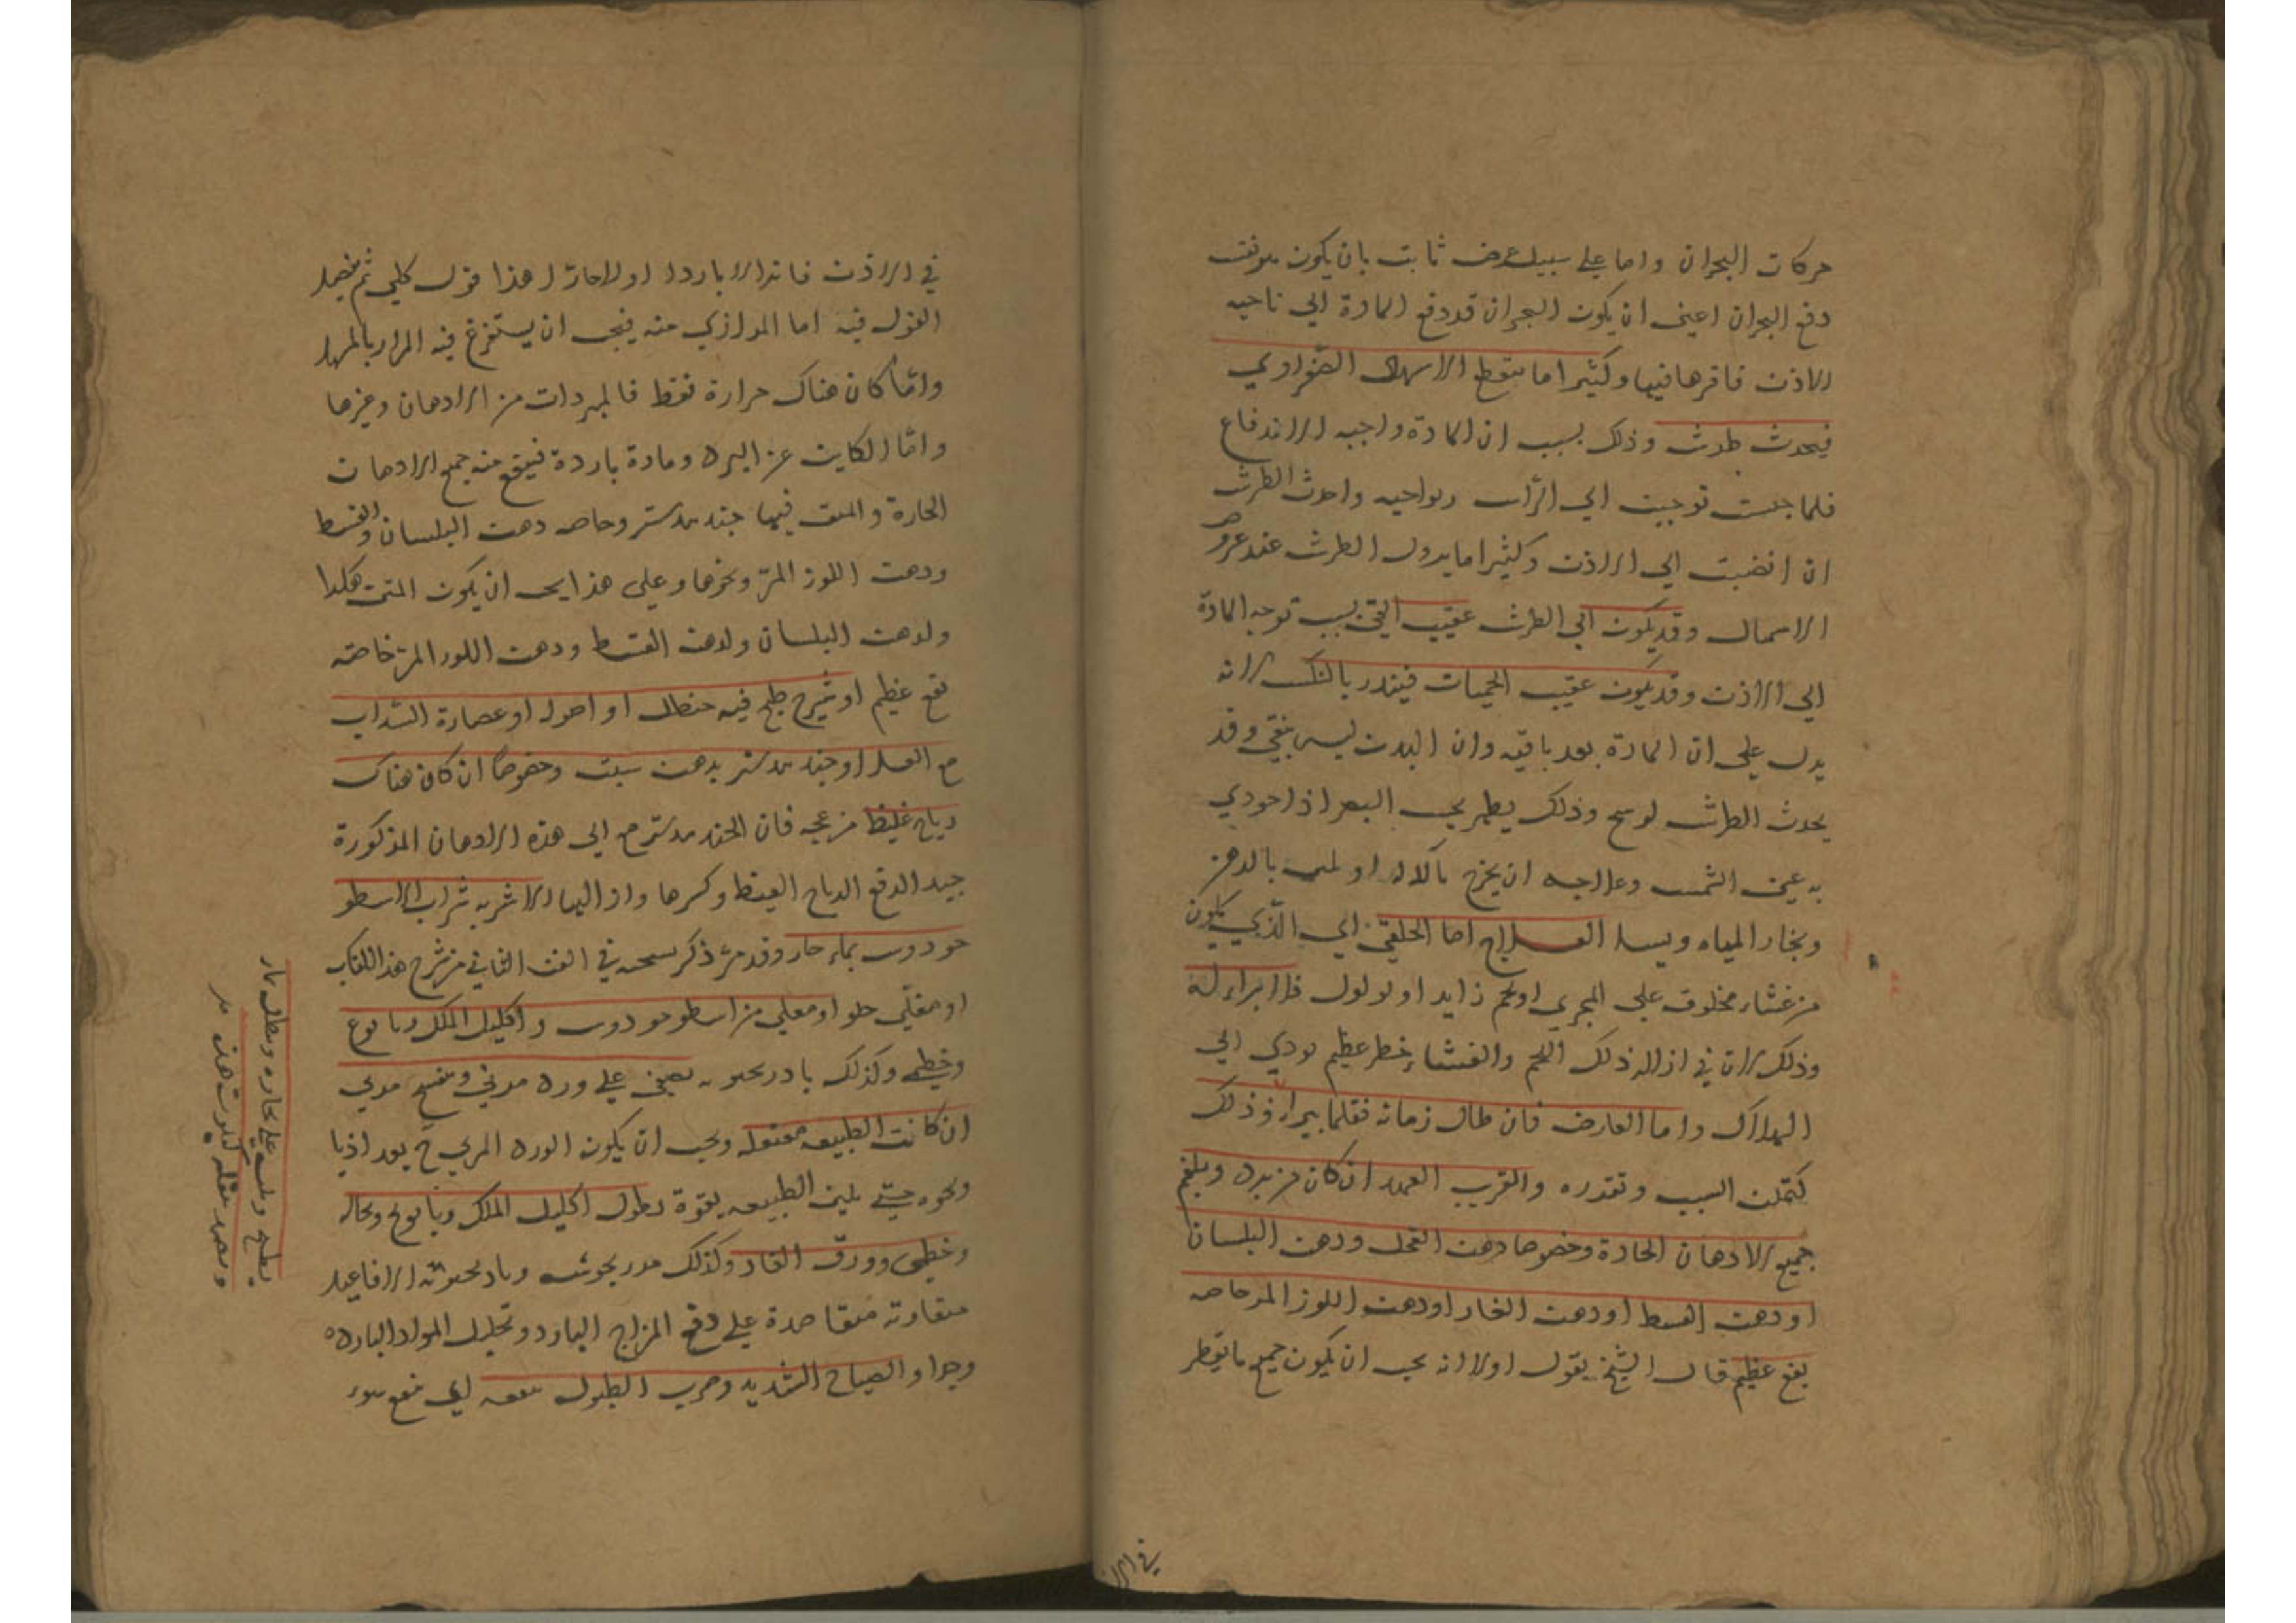 حركات البحران واما على سبيل عرض ثابت بان يكون
دفع البحران اعنى ان يكون البحران قد دفع المادة الي ناحيه
الاذن فاقرها فيها وكثيرا ما الاسهال الصفراوي
فيحدث طرش وذلك بسبب ان المادة واجبه الاندفاع
فلما توجهت الي الراس ونواحيه واحدث الطرش
ان انصبت الي الاذن وكثيرا ما يزول الطرش عند عروض
الاسهال وقد يكون اي الطرش عقيب القى بسبب توجه المادة
الي الاذن وقد يكون عقيب الحميات فينذر بالنكس لانه
يدل على ان المادة بعد باقيه وان البدن ليس بنقي وقد
يحدث الطرش لوسخ وذلك يظهر بحس البصر اذا حودي
به عين الشمس وعلاجه ان يخرج بالالة او بالدهن
وبخار المياه العلاج اما الخلقي اي الذي يكون
من غشاء مخلوق على المجري او لحم زايد او تولول فلا ابراء له
وذلك لان في ازالة ذلك اللحم والغشاء خطر عظيم يودي الي
الهلاك واما العارض فان طال زمانه فقلما يبرا وذلك
لتمكن السبب وتقدره والقريب العهد ان كان من برد وبلغم
جميع الادهان الحارة وخصوصا دهن الفجل ودهن البلسان
او دهن القسط او دهن الغار او دهن اللوز المر خاصه
نفع عظيم قال الشيخ يقول اولا انه يجب ان يكون جميع ما يقطر
في الا
في الاذن فاترا لا باردا ولا حارا هذا قول كلي ثم
القول فيه اما المرارزي منه فيجب ان يستفرغ فيه المرار بالمسهل
واما كان هناك حرارة فقط فالمبردات من الادهان وغيرها
واما الكاين عن البرد ومادة باردة فينفع منه جميع الادهان
الحارة فيها جندبيدستر وخاصه دهن البلسان والقسط
ودهن اللوز المر ونحوها وعلى هذا يجب ان يكون المتن هكذا
ولدهن البلسان ولدهن القسط ودهن اللوز المر خاصه
نفع عظيم او شيرج طبخ فيه حنظل او اصوله او عصارة السداب
مع العسل او جندبيدستر بدهن شبت وخصوصا ان كان هناك
رياح غليظ مزعجه فان الجندبيدستر مع الي هذه الادهان المذكورة
جيد الدفع الرياح الغليظ وكسرها الاشربه شراب الاسطو
خودوس بماء حار وقد مر ذكر في الفن الثاني من شرح هذا الكتاب
او مغلي حلو او مغلي من اسطوخودوس واكليل الملك وبابونج
وخطمي وكذلك بادرنجبويه يصفى على ورد مربي وبنفسج مربي
ان كانت الطبيعه معتقله ويجب ان يكون الورد المربي
ونحوه حتى يلين الطبيعه بقوة نطول اكليل الملك وبابونج ونخاله
وخطمي وورق الغار وكذلك الافاعيل
متقاربة متعاضدة على دفع المزاج البارد وتحليل المواد الباردة
الصياح الشديد وضرب الطبول اي نفع
يطبخ على بخاره